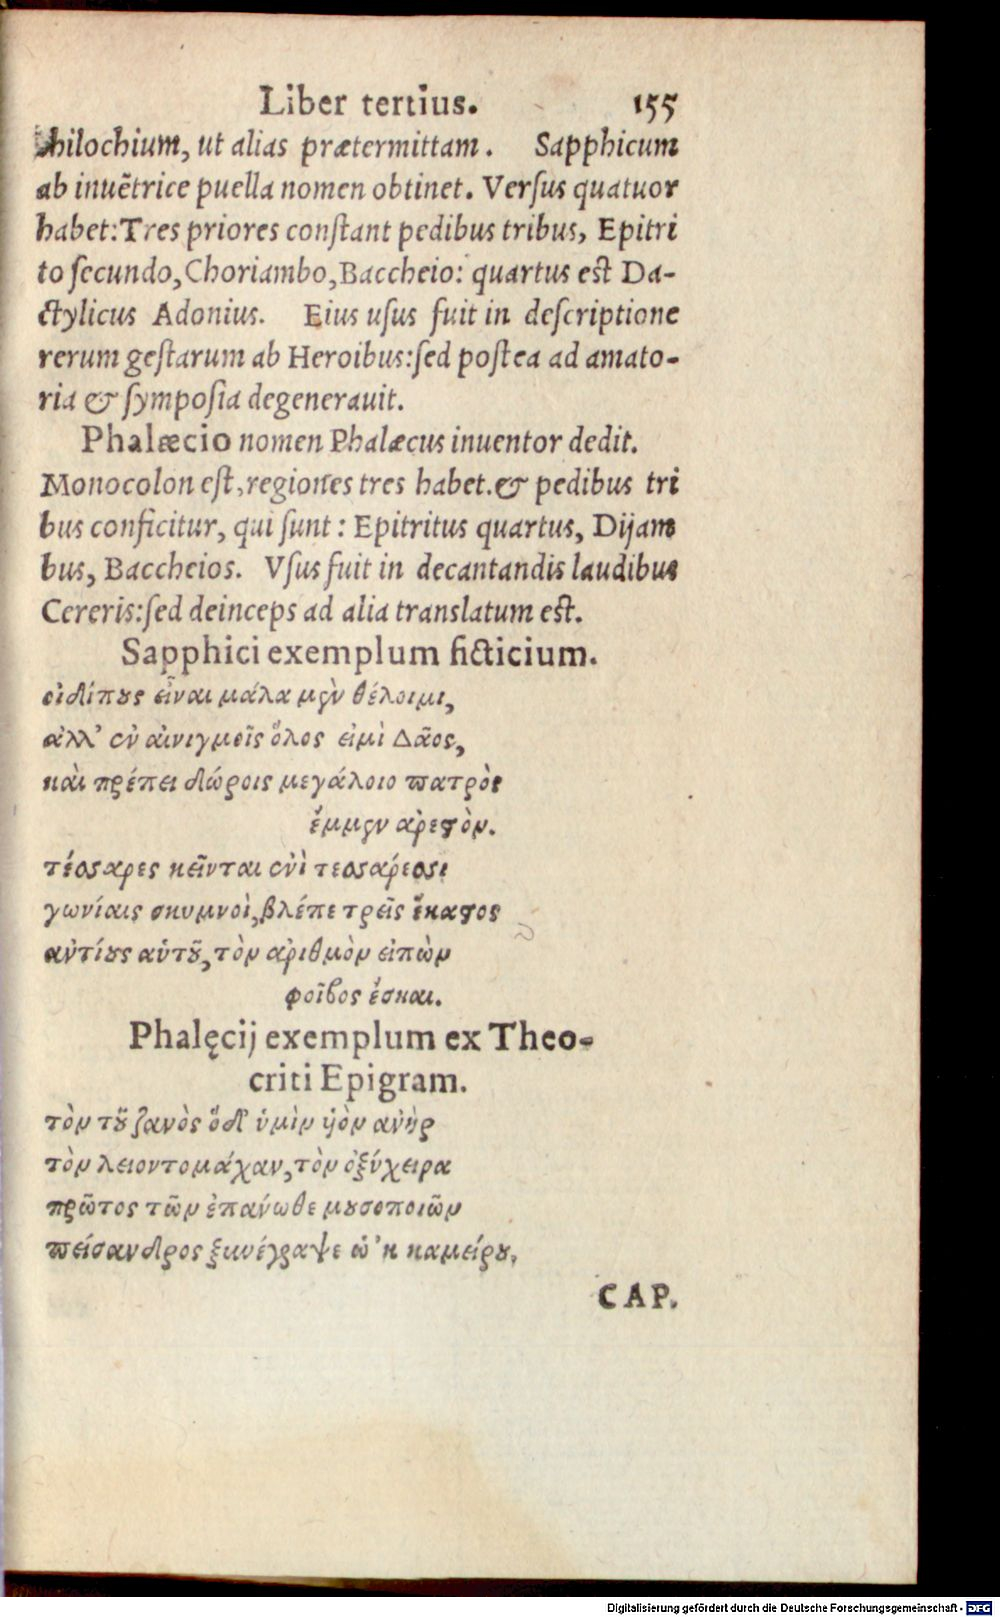 Liber tertius. 155
Philochium, ut alias prætermittam. Sapphicum
ab inuẽtrice puella nomen obtinet. Verſus quatuor
habet: Tres priores conſtant pedibus tribus, Epitri
to ſecundo, Choriambo, Baccheio: quartus eſt Da-
ctylicus Adonius. Eius uſus fuit in deſcriptione
rerum geſtarum ab Heroibus: ſed poſtea ad amato-
ria & ſympoſia degenerauit.
Phalæcio nomen Phalæcus inuentor dedit.
Monocolon eſt, regiones tres habet. & pedibus tri
bus conficitur, qui ſunt: Epitritus quartus, Dijam
bus, Baccheios. Vſus fuit in decantandis laudibus
Cereris: ſed deinceps ad alia translatum eſt.
Sapphici exemplum ficticium.
οἰδίπȣς εἶναι μάλα μὲν θέλοιμι,
ἀλλ' ἐν αἰνιγμοῖς ὅλος εἰμὶ Δᾶος,
καὶ πρέπει δώροις μεγάλοιο πατρὸς
ἔμμεν ἀρεϛὸν.
τέσσαρες κεῖνται ἐνὶ τεσσάρεσσι
γωνίαις σκυμνοὶ, βλέπε τρεῖς ἕκαϛος
ἀντίȣς αὑτȣ͂, τὸν ἀριθμὸν εἰπὼν
φοῖβος ἔσκαι.
Phalęcij exemplum ex Theo-
criti Epigram.
τὸν τȣ͂ ζανὸς ὅδ' ὑμὶν ὑὸν ἀνὴρ
τὸν λειοντομάχαν, τὸν ὀξύχειρα
πρῶτος τῶν ἐπάνωθε μȣσοποιῶν
πείσανδρος ξυνέγραψε ὡ'κ καμείρȣ.
CAP.
Digitalisierung gefördert durch die Deutsche Forschungsgemeinschaft - DFG